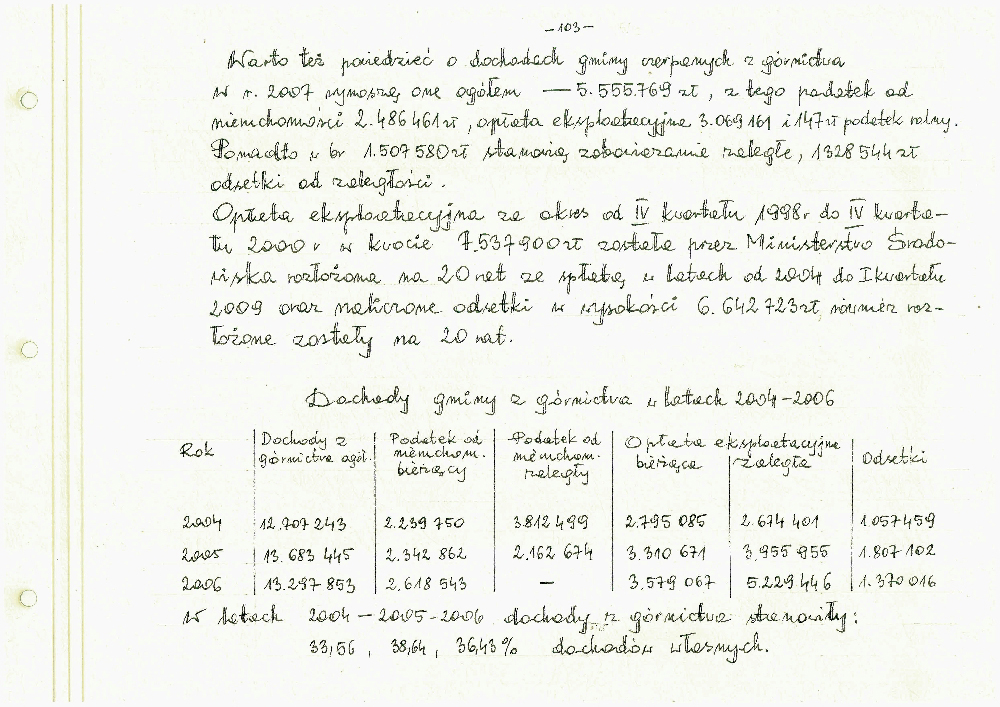 -103-
Warto też powiedzieć o dochodach gminy czerpanych z górnictwa
w r. 2007 wynoszą one ogółem — 5.555.769 zł, z tego podatek od
nieruchomości 2.486 461 zł, opłata eksploatacyjna 3.069 161 i 147 zł podatek rolny.
Ponadto w br 1.507 580 zł stanowią zobowiązania zaległe, 1328 544 zł
odsetki od zaległości.
Opłata eksploatacyjna za okres od IV kwartału 1998 r do IV kwarta-
łu 2000 r w kwocie 7.537 900 zł została przez Ministerstwo Środo-
wiska rozłożona na 20 rat ze spłatą w latach od 2004 do I kwartału
2009 oraz naliczone odsetki w wysokości 6.642 723 zł również roz-
łożone zostały na 20 rat.
Dochody gminy z górnictwa w latach 2004-2006
Rok | Dochody z górnictwa ogół. | Podatek od nieruchom. bieżący | Podatek od nieruchom. zaległy | Opłata eksploatacyjna bieżąca | zaległa | Odsetki
2004 | 12.707 243 | 2.239 750 | 3812 499 | 2.795 085 | 2.674 401 | 1057459
2005 | 13.683 445 | 2.342 862 | 2.162 674 | 3.310 671 | 3.955 955 | 1.807 102
2006 | 13.297 853 | 2.618 543 | — | 3.579 067 | 5.229 446 | 1.370 016
W latach 2004-2005-2006 dochody z górnictwa stanowiły:
33,56 , 38,64 , 36,43% dochodów własnych.